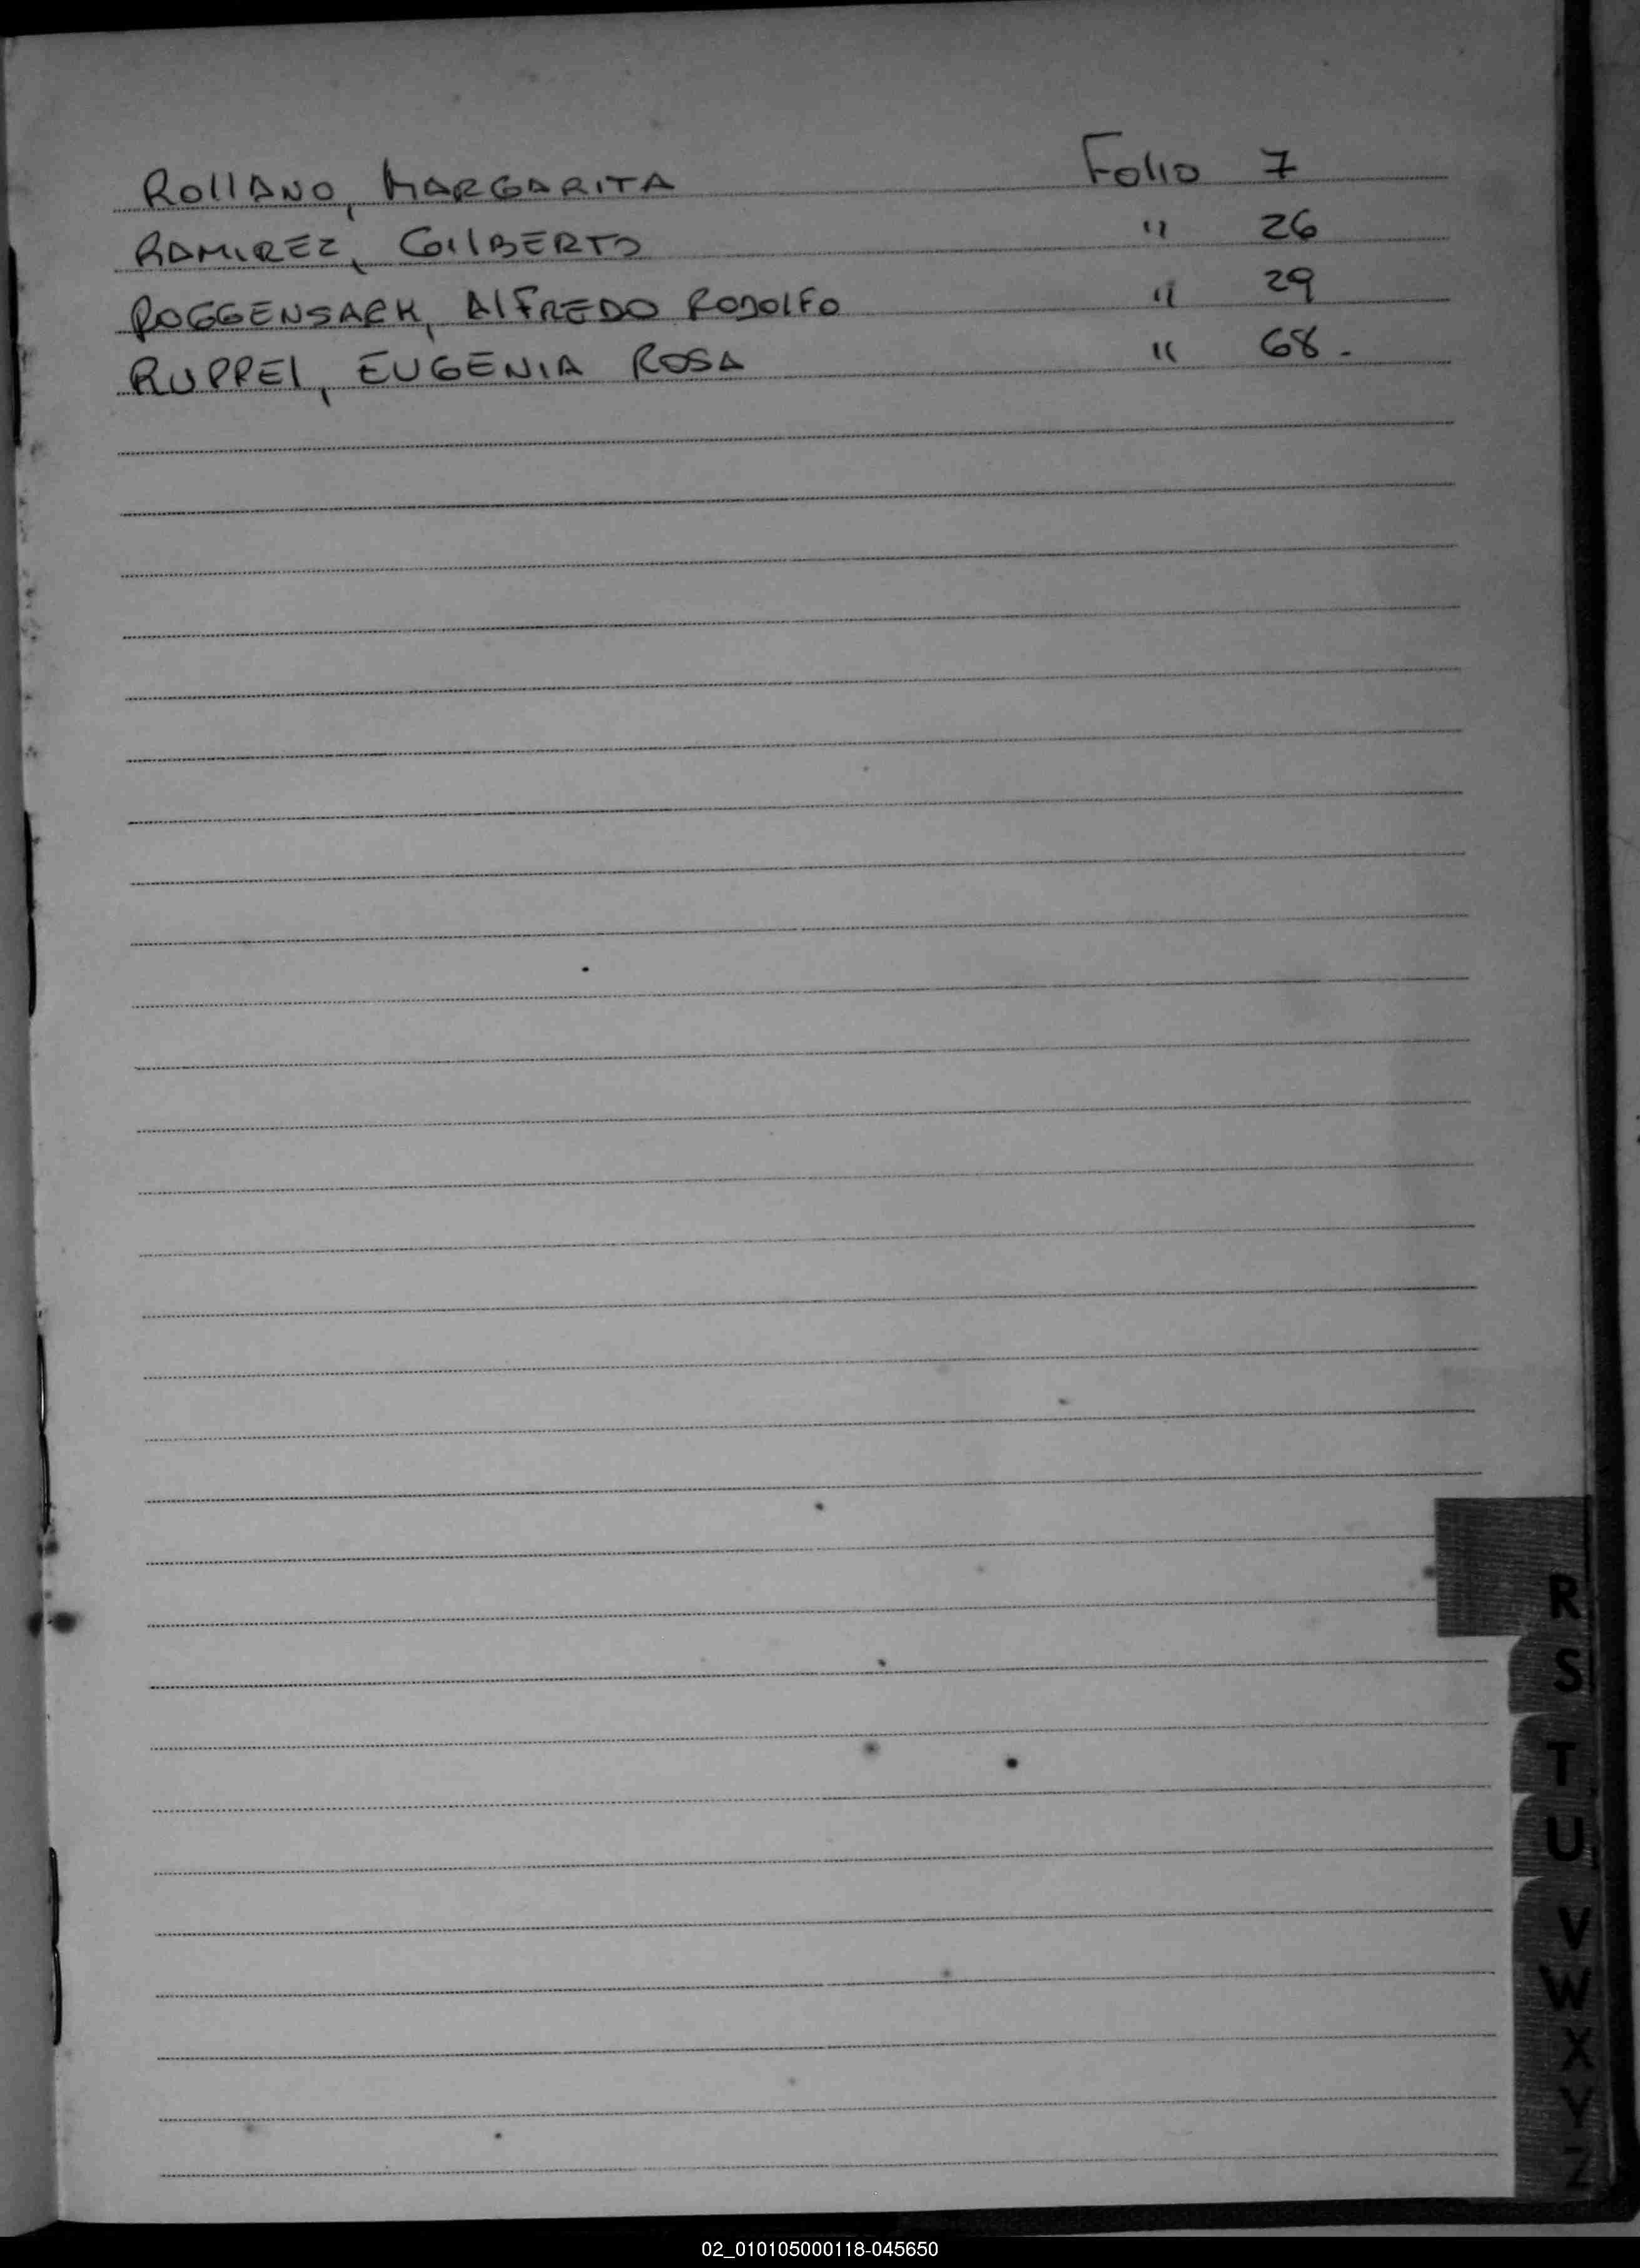 ROllANO, MARGARITA Folio 7
RAMIREZ, GIlBERTO " 26
ROGGENSACK, AlFREDO RODOlFO " 29
RUPPEl, EUGENIA ROSA " 68.-
R
S
T
U
V
W
X
Y
Z
02_010105000118-045650